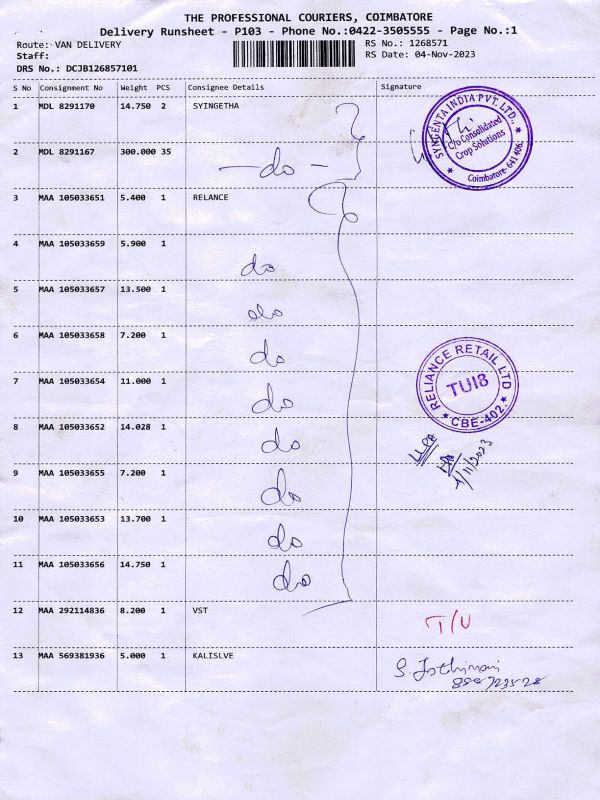 THE PROFESSIONAL COURIERS, COIMBATORE
Delivery Runsheet - P103 - Phone No.:0422-3505555 - Page No.:1
Route: VAN DELIVERY RS No.: 1268571
Staff: RS Date: 04-Nov-2023
DRS No.: DCJB126857101
S No Consignment No Weight PCS Consignee Details Signature
1 MDL 8291170 14.750 2 SYINGETHA
SYNGENTA INDIA PVT. LTD.,
C/o Consolidated
Crop Solutions
Coimbatore-641406.
2 MDL 8291167 300.000 35 - do -
3 MAA 105033651 5.400 1 RELANCE
4 MAA 105033659 5.900 1 do
5 MAA 105033657 13.500 1 do
6 MAA 105033658 7.200 1 do
RELIANCE RETAIL LTD
TUI8
CBE-402.
7 MAA 105033654 11.000 1 do
8 MAA 105033652 14.028 1 do
4/11/2023
9 MAA 105033655 7.200 1 do
10 MAA 105033653 13.700 1 do
11 MAA 105033656 14.750 1 do
12 MAA 292114836 8.200 1 VST T/U
13 MAA 569381936 5.000 1 KALISLVE S. Jothimani